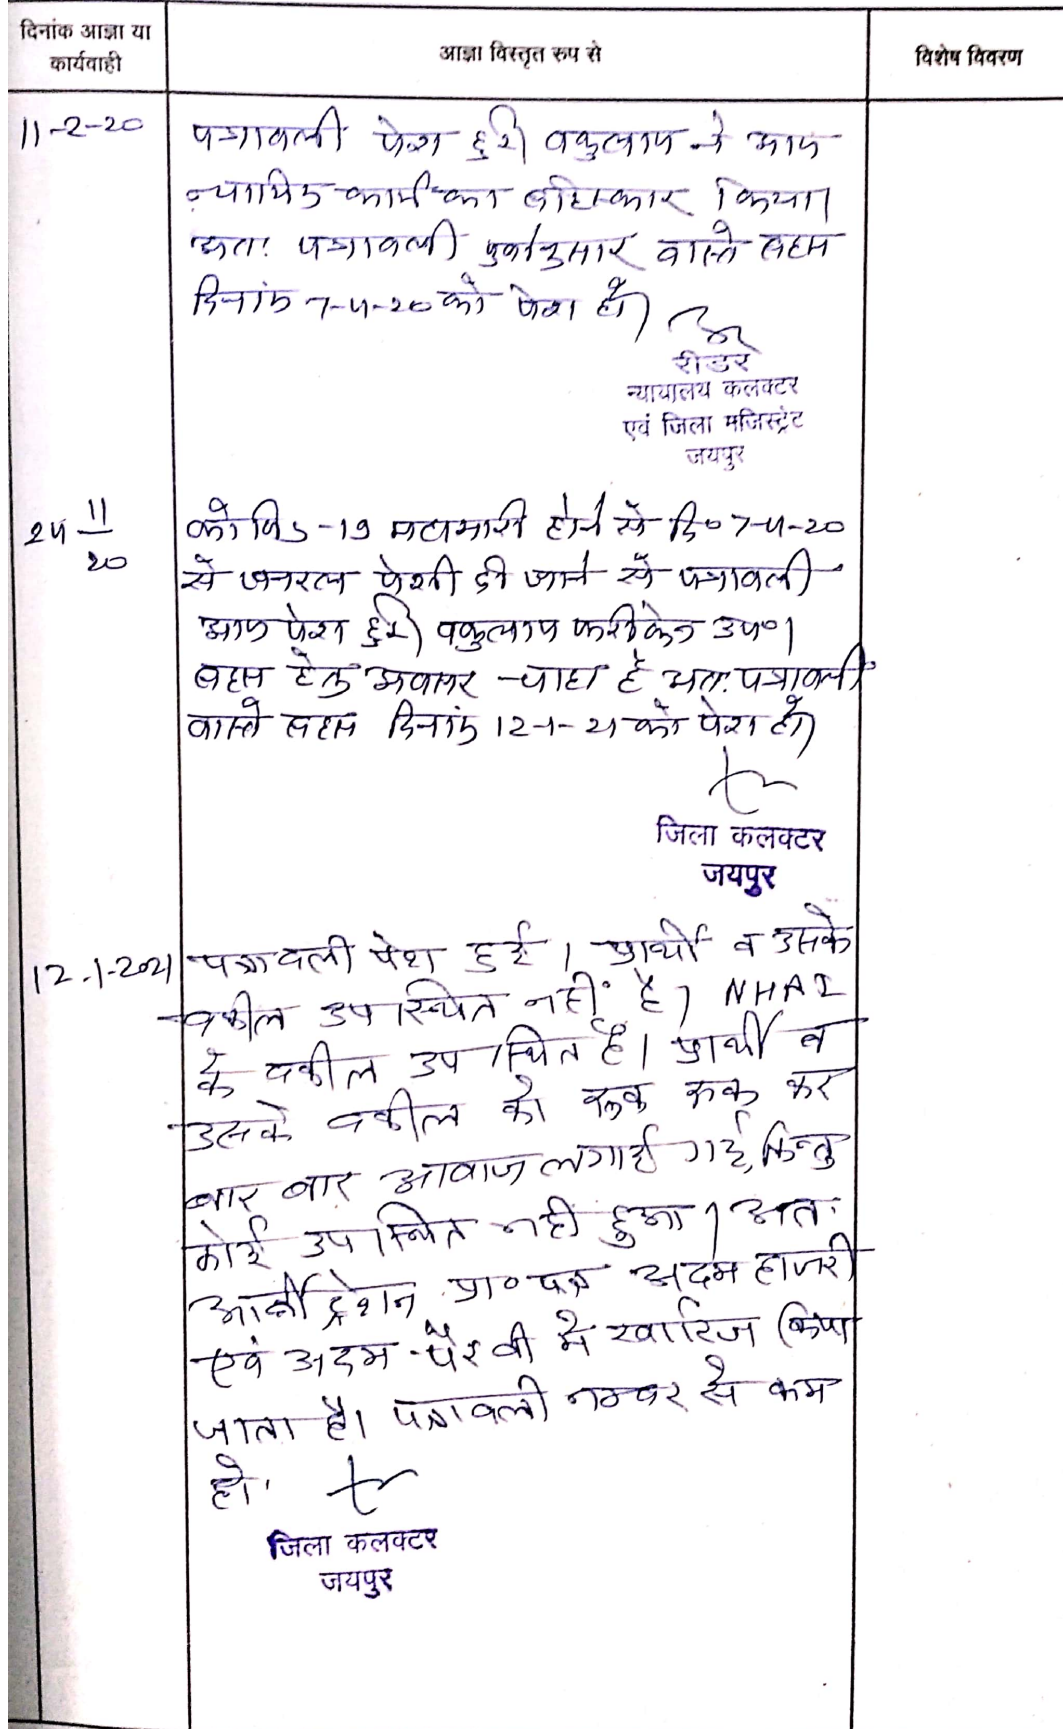 दिनांक आज्ञा या
कार्यवाही
आज्ञा विस्तृत रुप से
विशेष विवरण
11-2-20
पत्रावली पेश हुई। वकुलाय ने आज
न्यायिक कार्य का बहिष्कार किया।
अतः पत्रावली पुर्वानुसार वास्ते बहस
दिनांक 7-4-20 को पेश हो।
रीडर
न्यायालय कलक्टर
एवं जिला मजिस्ट्रेट
जयपुर
24 11/20
कोविड-19 महामारी होने से दि० 7-4-20
से जनरल पेशी दी जाने से पत्रावली
आज पेश हुई। वकुलाय फरीकेन उप०।
बहस हेतु अवसर चाहा है अतः पत्रावली
वास्ते बहस दिनांक 12-1-21 को पेश हो।
जिला कलक्टर
जयपुर
12.1-2021
पत्रावली पेश हुई। प्रार्थी व उसके
वकील उपस्थित नहीं है। NHAI
के वकील उपस्थित है। प्रार्थी व
उसके वकील को रुक रुक कर
बार बार आवाज लगाई गई, किन्तु
कोई उपस्थित नही हुआ। अतः
आर्बीट्रेशन प्रा०पत्र अदम हाजरी
एवं अदम पैरवी में खारिज किया
जाता है। पत्रावली नम्बर से कम
हो।
जिला कलक्टर
जयपुर